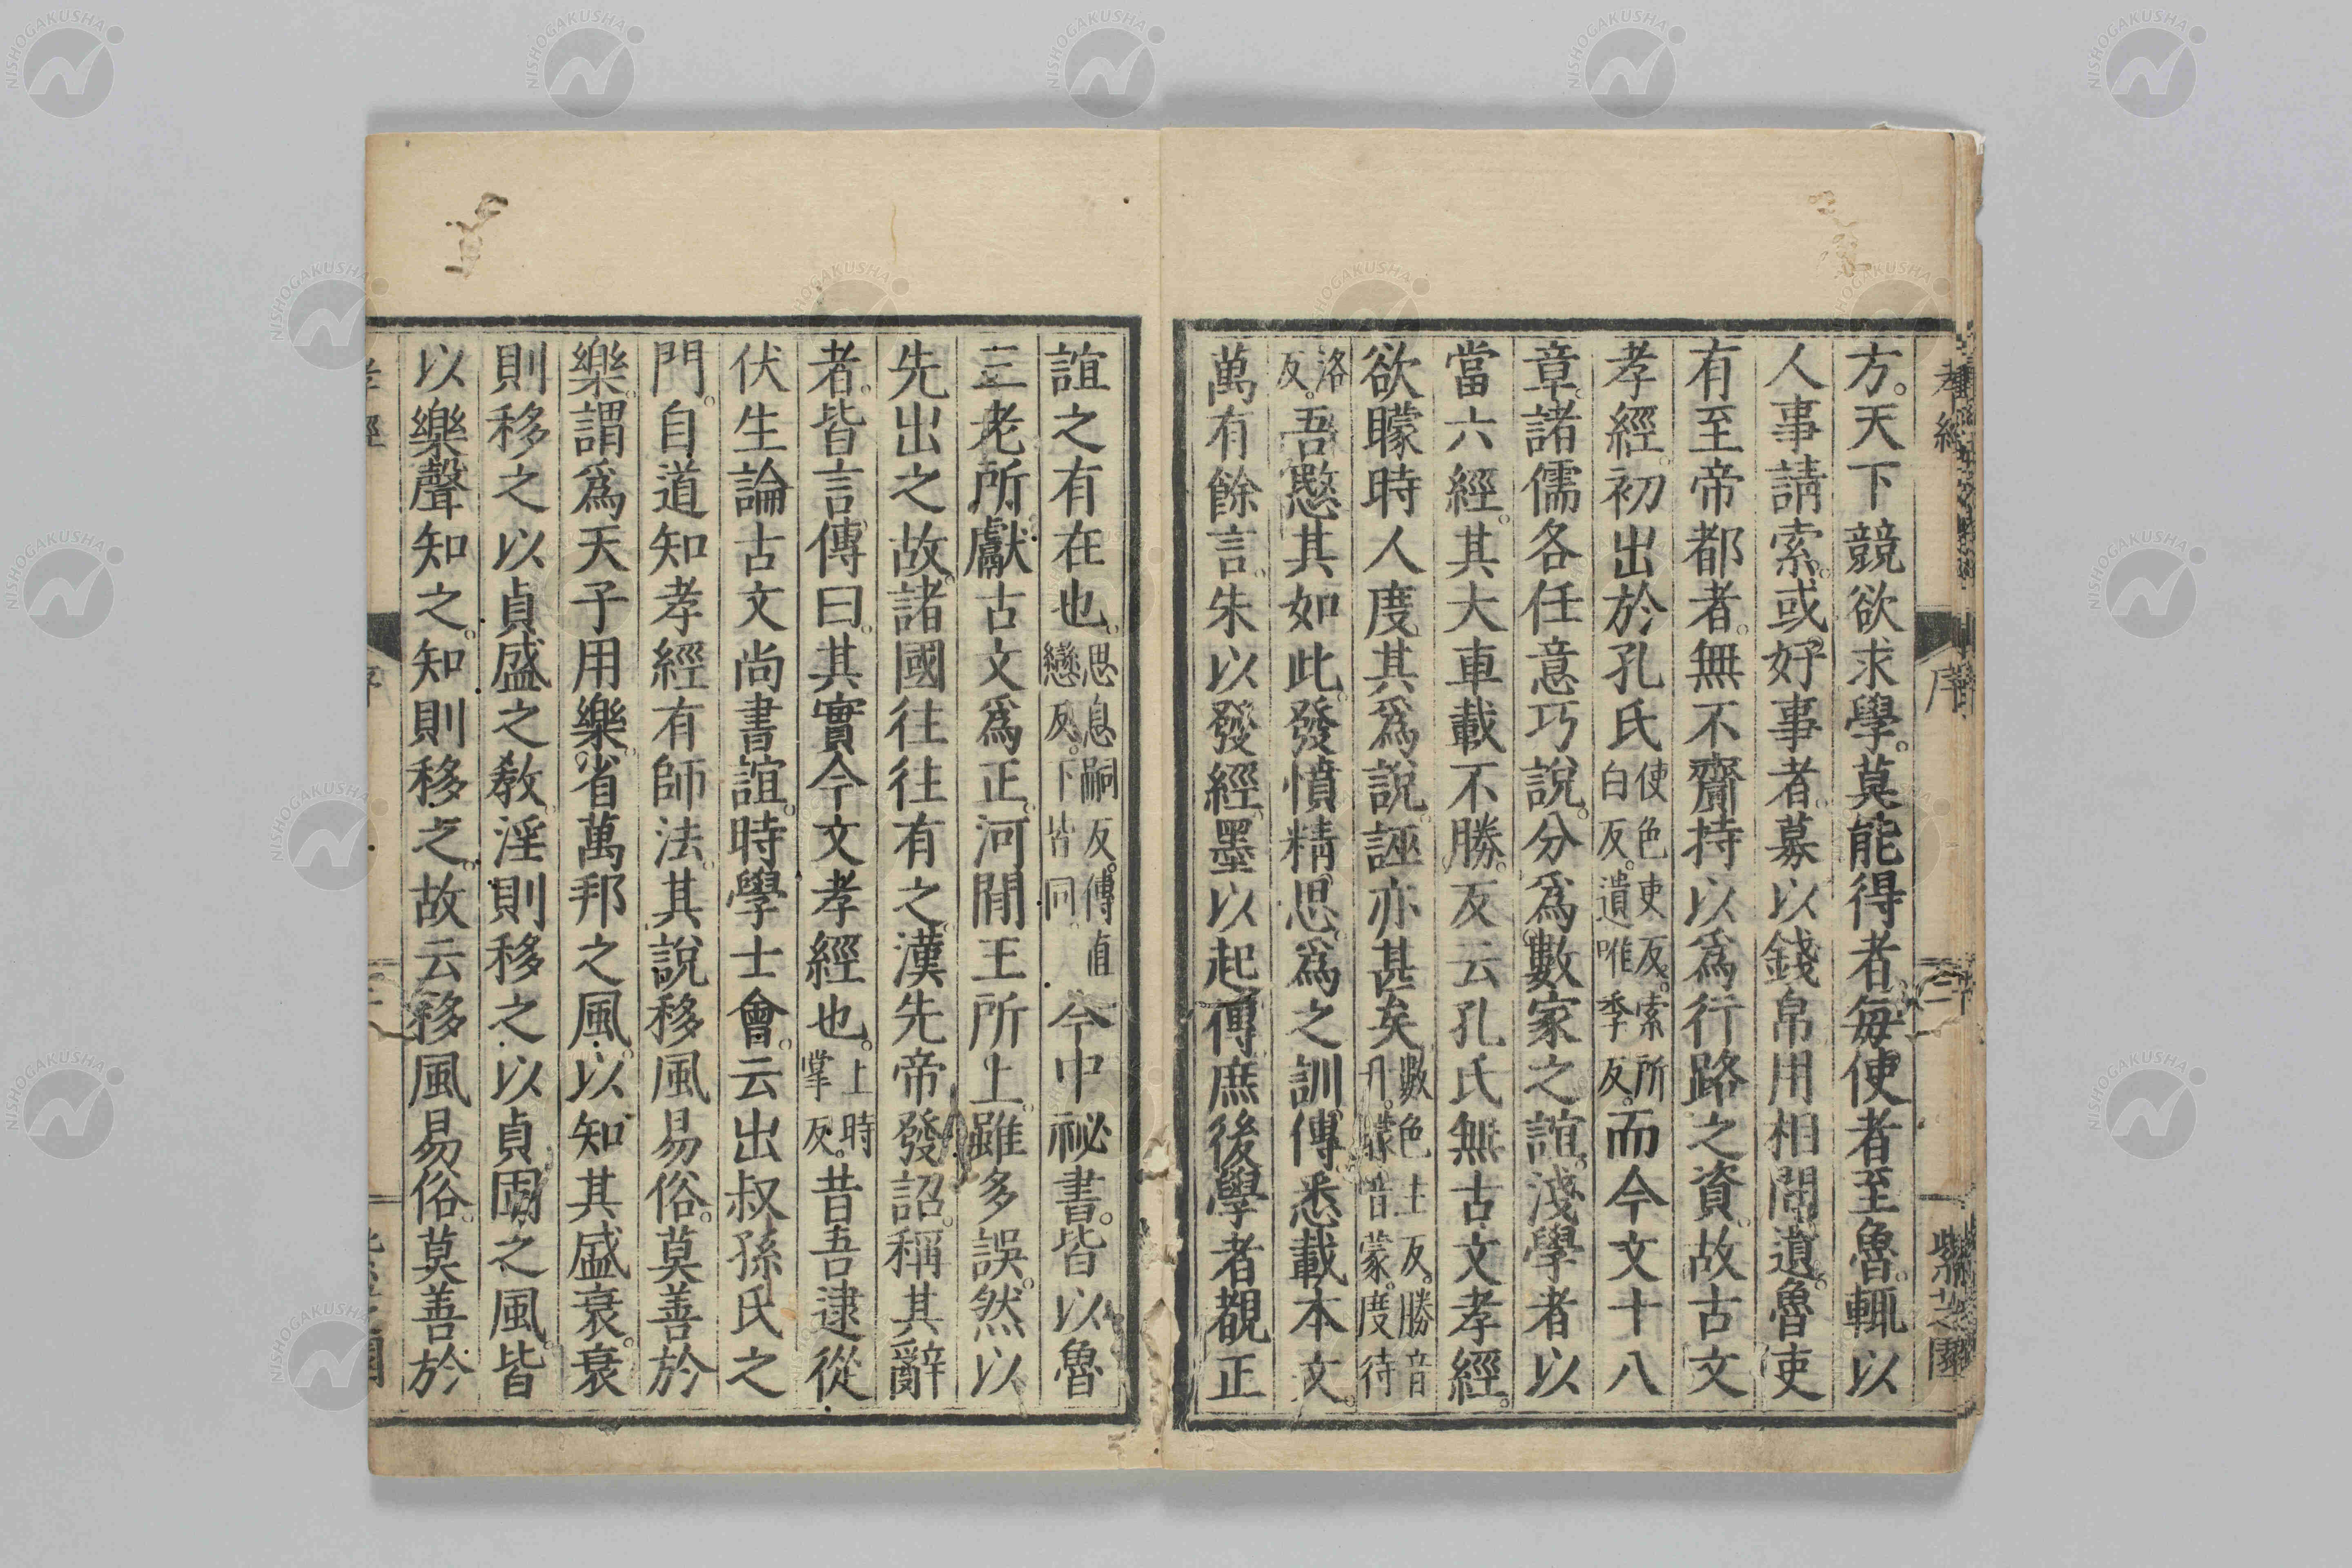 孝經
序
紫芝園
方。天下競欲求學。莫能得者。每使者至魯。輒以
人事請索。或好事者。募以錢帛用相問遺。魯吏
有至帝都者。無不齎持以爲行路之資。故古文
孝經。初出於孔氏使色吏反。索所白反。遺唯季反。而今文十八
章。諸儒各任意巧說。分爲數家之誼。淺學者以
當六經。其大車載不勝。反云孔氏無古文孝經。
欲矇時人。度其爲說。誣亦甚矣數色主反。勝音升。矇音蒙。度待
洛反。吾愍其如此。發憤精思。爲之訓傳。悉載本文。
萬有餘言。朱以發經。墨以起傳。庶後學者覩正
誼之有在也。思息嗣反。傳直戀反。下皆同。今中祕書。皆以魯
三老所獻古文爲正。河間王所上。雖多誤。然以
先出之故。諸國往往有之。漢先帝發詔。稱其辭
者。皆言傳曰。其實今文孝經也。上時掌反。昔吾逮從
伏生論古文尚書誼。時學士會。云出叔孫氏之
門。自道知孝經有師法。其說移風易俗。莫善於
樂。謂爲天子用樂。省萬邦之風。以知其盛衰。衰
則移之以貞盛之教。淫則移之以貞固之風。皆
以樂聲知之。知則移之。故云移風易俗。莫善於
NISHOGAKUSHA